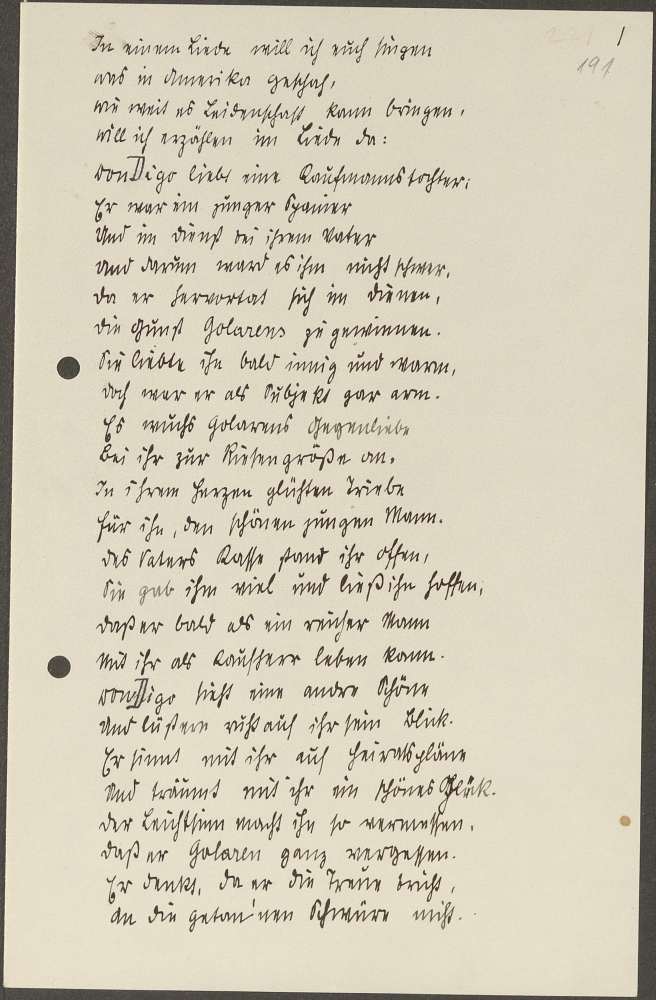 221 1
191
In einem Liede will ich euch singen
was in Amerika geschah,
wie weit es Leidenschaft kann bringen,
will ich erzählen im Liede da:
von Digo liebt eine Kaufmannstochter;
Er war ein junger Spanier
Und im Dienst bei ihrem Vater
und darum ward es ihm nicht schwer,
da er hervortat sich im dienen,
die Gunst Golarens zu gewinnen.
Sie liebte ihn bald innig und warm,
doch war er als Subjekt gar arm.
Es wuchs Golarens Gegenliebe
Bei ihr zur Riesengröße an.
In ihrem Herzen glühten Triebe
für ihn, den schönen jungen Mann.
des Vaters Kasse stand ihr offen,
Sie gab ihm viel und ließ ihn hoffen,
daß er bald als ein reicher Mann
Mit ihr als Kaufherr leben kann.
von Digo sieht eine andre Schöne
Und lüstern ruht auf ihr sein Blick.
Er sinnt mit ihr auf Heiratspläne
Und träumt mit ihr ein schönes Glück.
der Leichtsinn macht ihn so vermessen,
daß er Golaren ganz vergessen.
Er denkt, da er die Treue bricht,
An die getan'nen Schwüre nicht.